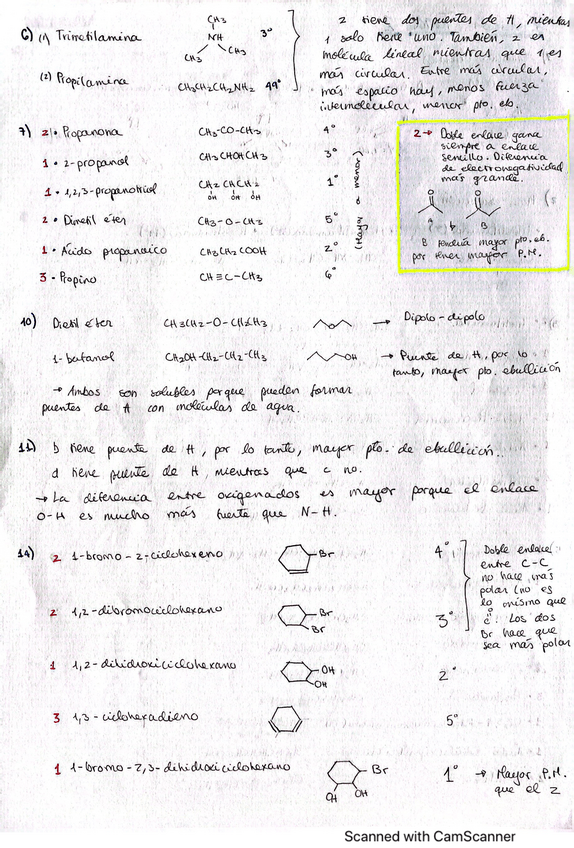 6) (1) Trimetilamina
CH3
NH
CH3 CH3
3°
(2) Propilamina CH3CH2CH2NH2
2 tiene dos puentes de H, mientras
1 solo tiene uno. También, 2 es
molécula lineal mientras que 1 es
más circular. Entre más circular,
más espacio hay, menos fuerza
intermolecular, menor pto. eb.
7) 2 • Propanona CH3-CO-CH3 4°
1 • 2-propanol CH3CHOHCH3 3°
1 • 1,2,3-propanotriol CH2CHCH2 1°
OH OH OH
2 • Dimetil éter CH3-O-CH3 5°
1 • Ácido propanoico CH3CH2COOH 2°
3 • Propino CH≡C-CH3 6°
(Mayor a menor)
2→ Doble enlace gana
siempre a enlace
sencillo. Diferencia
de electronegatividad
más grande.
O O
A y B
B tendría mayor pto. eb.
por tener mayor P.M.
10) Dietil éter CH3CH2-O-CH2CH3 O → Dipolo-dipolo
1-butanol CH2OH-CH2-CH2-CH3 OH → Puente de H, por lo
tanto, mayor pto. ebullición
→ Ambos son solubles porque pueden formar
puentes de H con moléculas de agua.
11) b tiene puente de H, por lo tanto, mayor pto. de ebullición.
d tiene puente de H, mientras que c no.
→ La diferencia entre oxigenados es mayor porque el enlace
O-H es mucho más fuerte que N-H.
14) 2 1-bromo-2-ciclohexeno Br 4°
2 1,2-dibromociclohexano Br Br 3°
Doble enlace
entre C-C
no hace más
polar (no es
lo mismo que
Los dos
Br hace que
sea más polar
1 1,2-dihidroxiciclohexano OH OH 2°
3 1,3-ciclohexadieno 5°
1 1-bromo-2,3-dihidroxiciclohexano Br OH OH 1° → Mayor P.M.
que el 2
Scanned with CamScanner